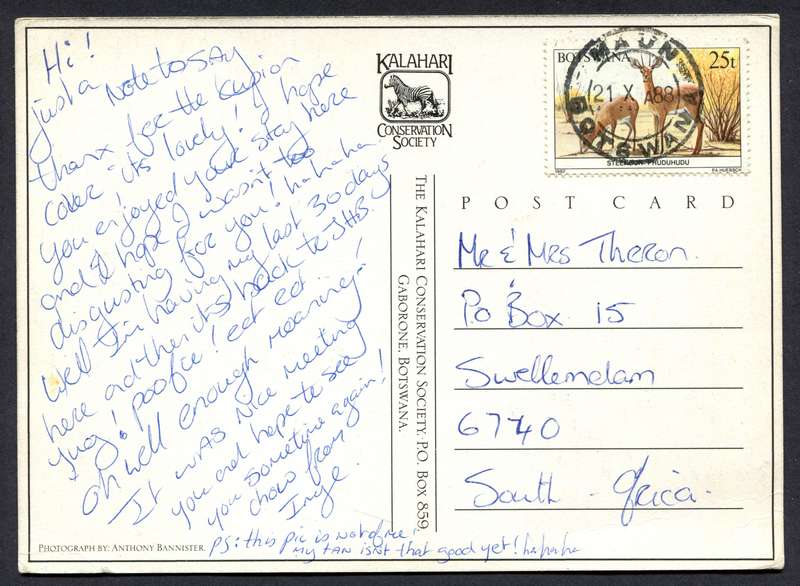 Hi!
just a Note to say
thanx for the cusion
cover - its lovely! I hope
you enjoyed your stay here
and I hope I wasn't too
disgusting for you! ha ha ha.
Well I'm having my last 30 days
here and then its back to JHB.
Yug! poofie! ect ect.
Oh well enough moaning!
It was nice meeting
you and hope to see
you sometime again!
chow from
Inge.
PS: this pic is not of me!
my TAN isnt that good yet! ha ha ha
PHOTOGRAPH BY: ANTHONY BANNISTER.
KALAHARI
CONSERVATION
SOCIETY
THE KALAHARI CONSERVATION SOCIETY, P.O. BOX 859,
GABORONE, BOTSWANA.
BOTSWANA 25t
MAUN
21 X A88
BOTSWANA
STEENBOK PHUDUHUDU
1987
POST CARD
Mr & Mrs Theron.
Po Box 15
Swellendam
6740
South Africa.